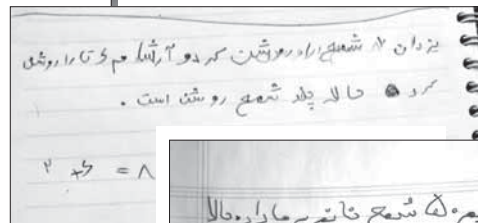 یزدان ۲ شمع را روشن کرد و آرشام ۶ تا را روشن
کرد حالا چند شمع روشن است .
۲ + ۶ = ۸
۵ شمع خانم به ما داد حالا